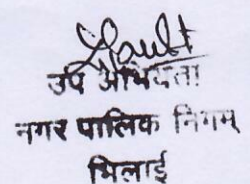 उप अभियंता
नगर पालिक निगम्
भिलाई